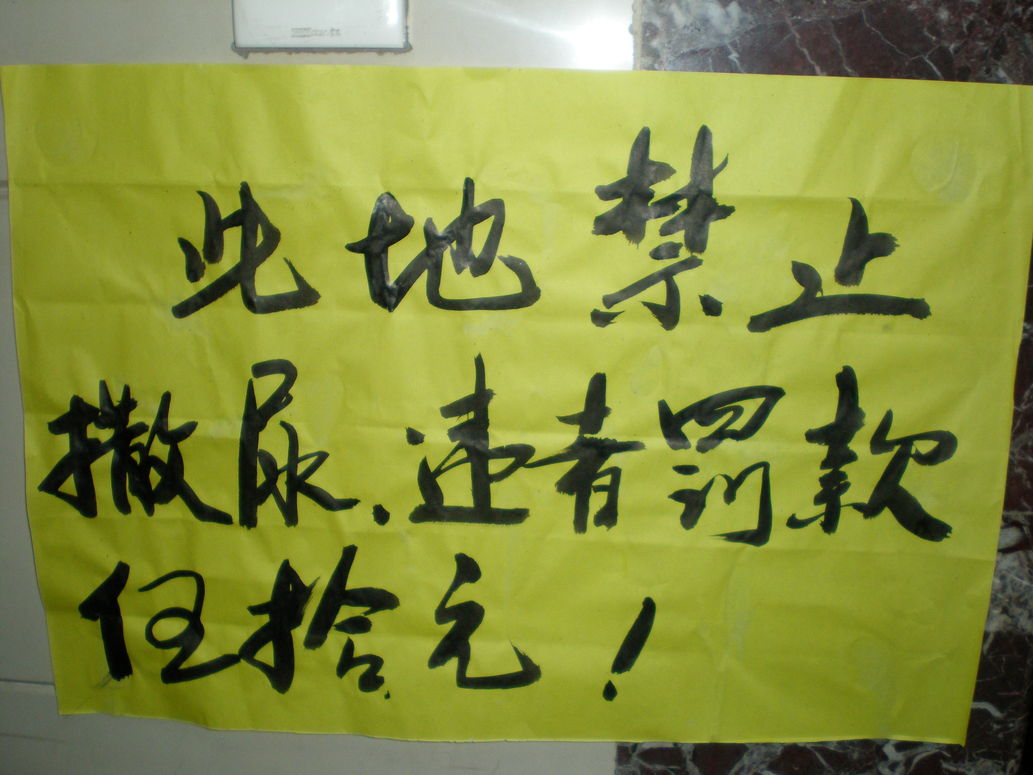 此地禁止
撒尿.违者罚款
伍拾元!